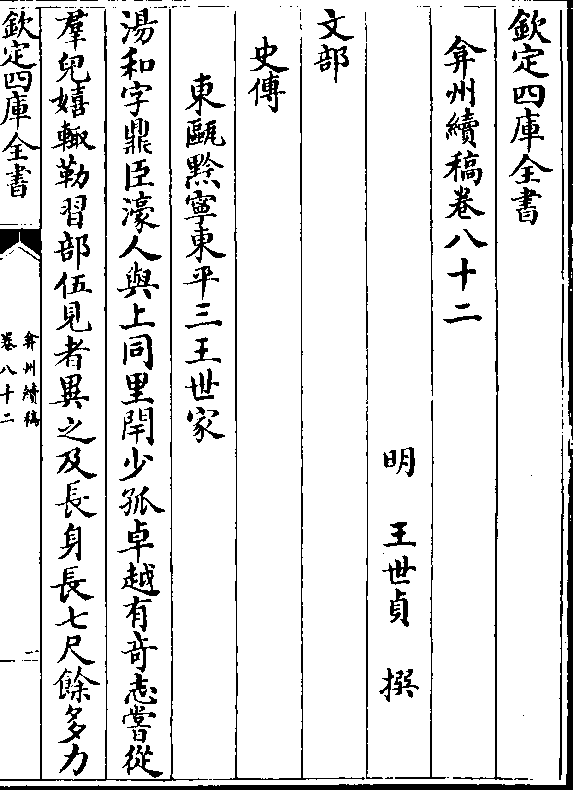 欽定四庫全書
弇州續稿卷八十二
明 王世貞 撰
文部
史傳
東甌黔寧東平三王世家
湯和字鼎臣濠人與上同里閈少孤卓越有奇志嘗從
羣兒嬉輙勒習部伍見者異之及長身長七尺餘多力
欽定四庫全書
弇州續稿
卷八十二
一